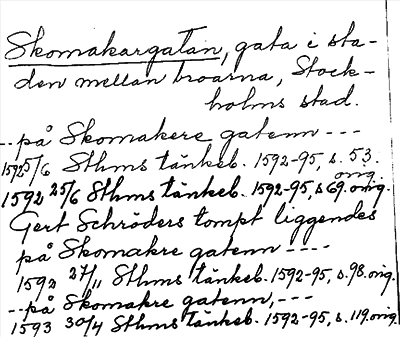 Skomakargatan, gata i sta-
den mellan broarna, Stock-
holms stad.
-- på Skomakere gatenn ---
1592 5/6 Sthms tänkeb. 1592-95, s. 53. orig.
1592 25/6 Sthms tänkeb. 1592-95, s 69. orig.
Gert Schröders tompt liggendes
på Skomakre gatenn ----
1592 27/11 Sthms tänkeb. 1592-95, s. 98. orig.
-- på Skomakre gatenn, ---
1593 30/4 Sthms tänkeb. 1592-95, s. 119. orig.